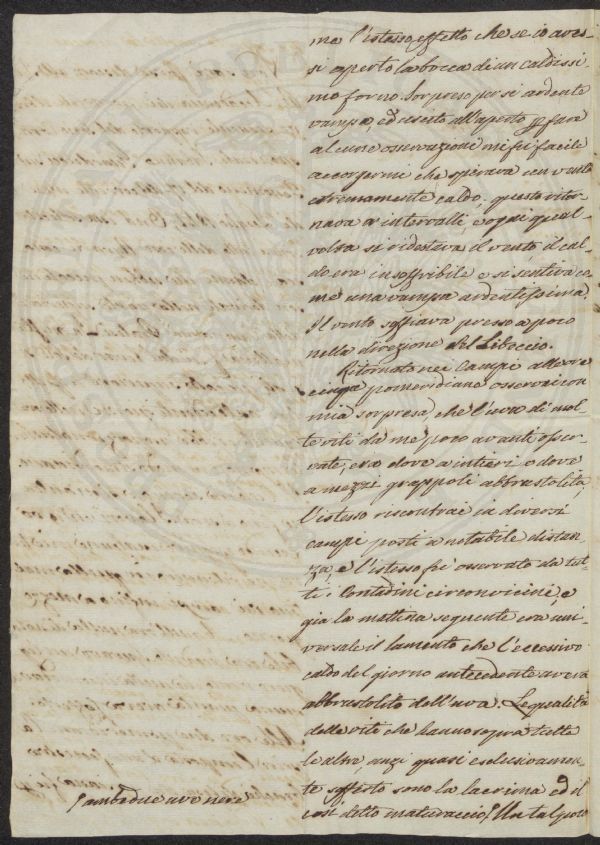 me l'istesso effetto che se io aves-
si aperto la bocca di un caldissi-
mo forno. Sorpreso per sì ardente
vampa, ed uscito all'aperto per fare
alcune osservazione mi fu facile
accorgermi che spirava un vento
estremamente caldo; questo ritor-
nava a intervalli, e ogni qual-
volta si ridestava il vento, il cal-
do era insoffribile e si sentiva co-
me una vampa ardentissima.
Il vento soffiava presso a poco
nella direzione del Libeccio.
Ritornato nei Campi alle ore
cinque pomeridiane osservai con
mia sorpresa, che l'uva di mol-
te viti da me poco avanti osser-
vate, era dove a intieri, o dove
a mezzi grappoli abbrustolita,
l'istesso riscontrai in diversi
campi posti a notabile distan-
za, e l'istesso fu osservato da tut-
ti i Contadini circonvicini, e
già la mattina seguente era uni-
versale il lamento che l'eccessivo
caldo del giorno antecedente aveva
abbrustolito dell'uva. Le qualità
delle vite che hanno sopra tutte
le altre, anzi quasi esclusivamen-
te sofferto sono la lacrima ed il
così detto maturaccio. Un tal
ambedue uve nere